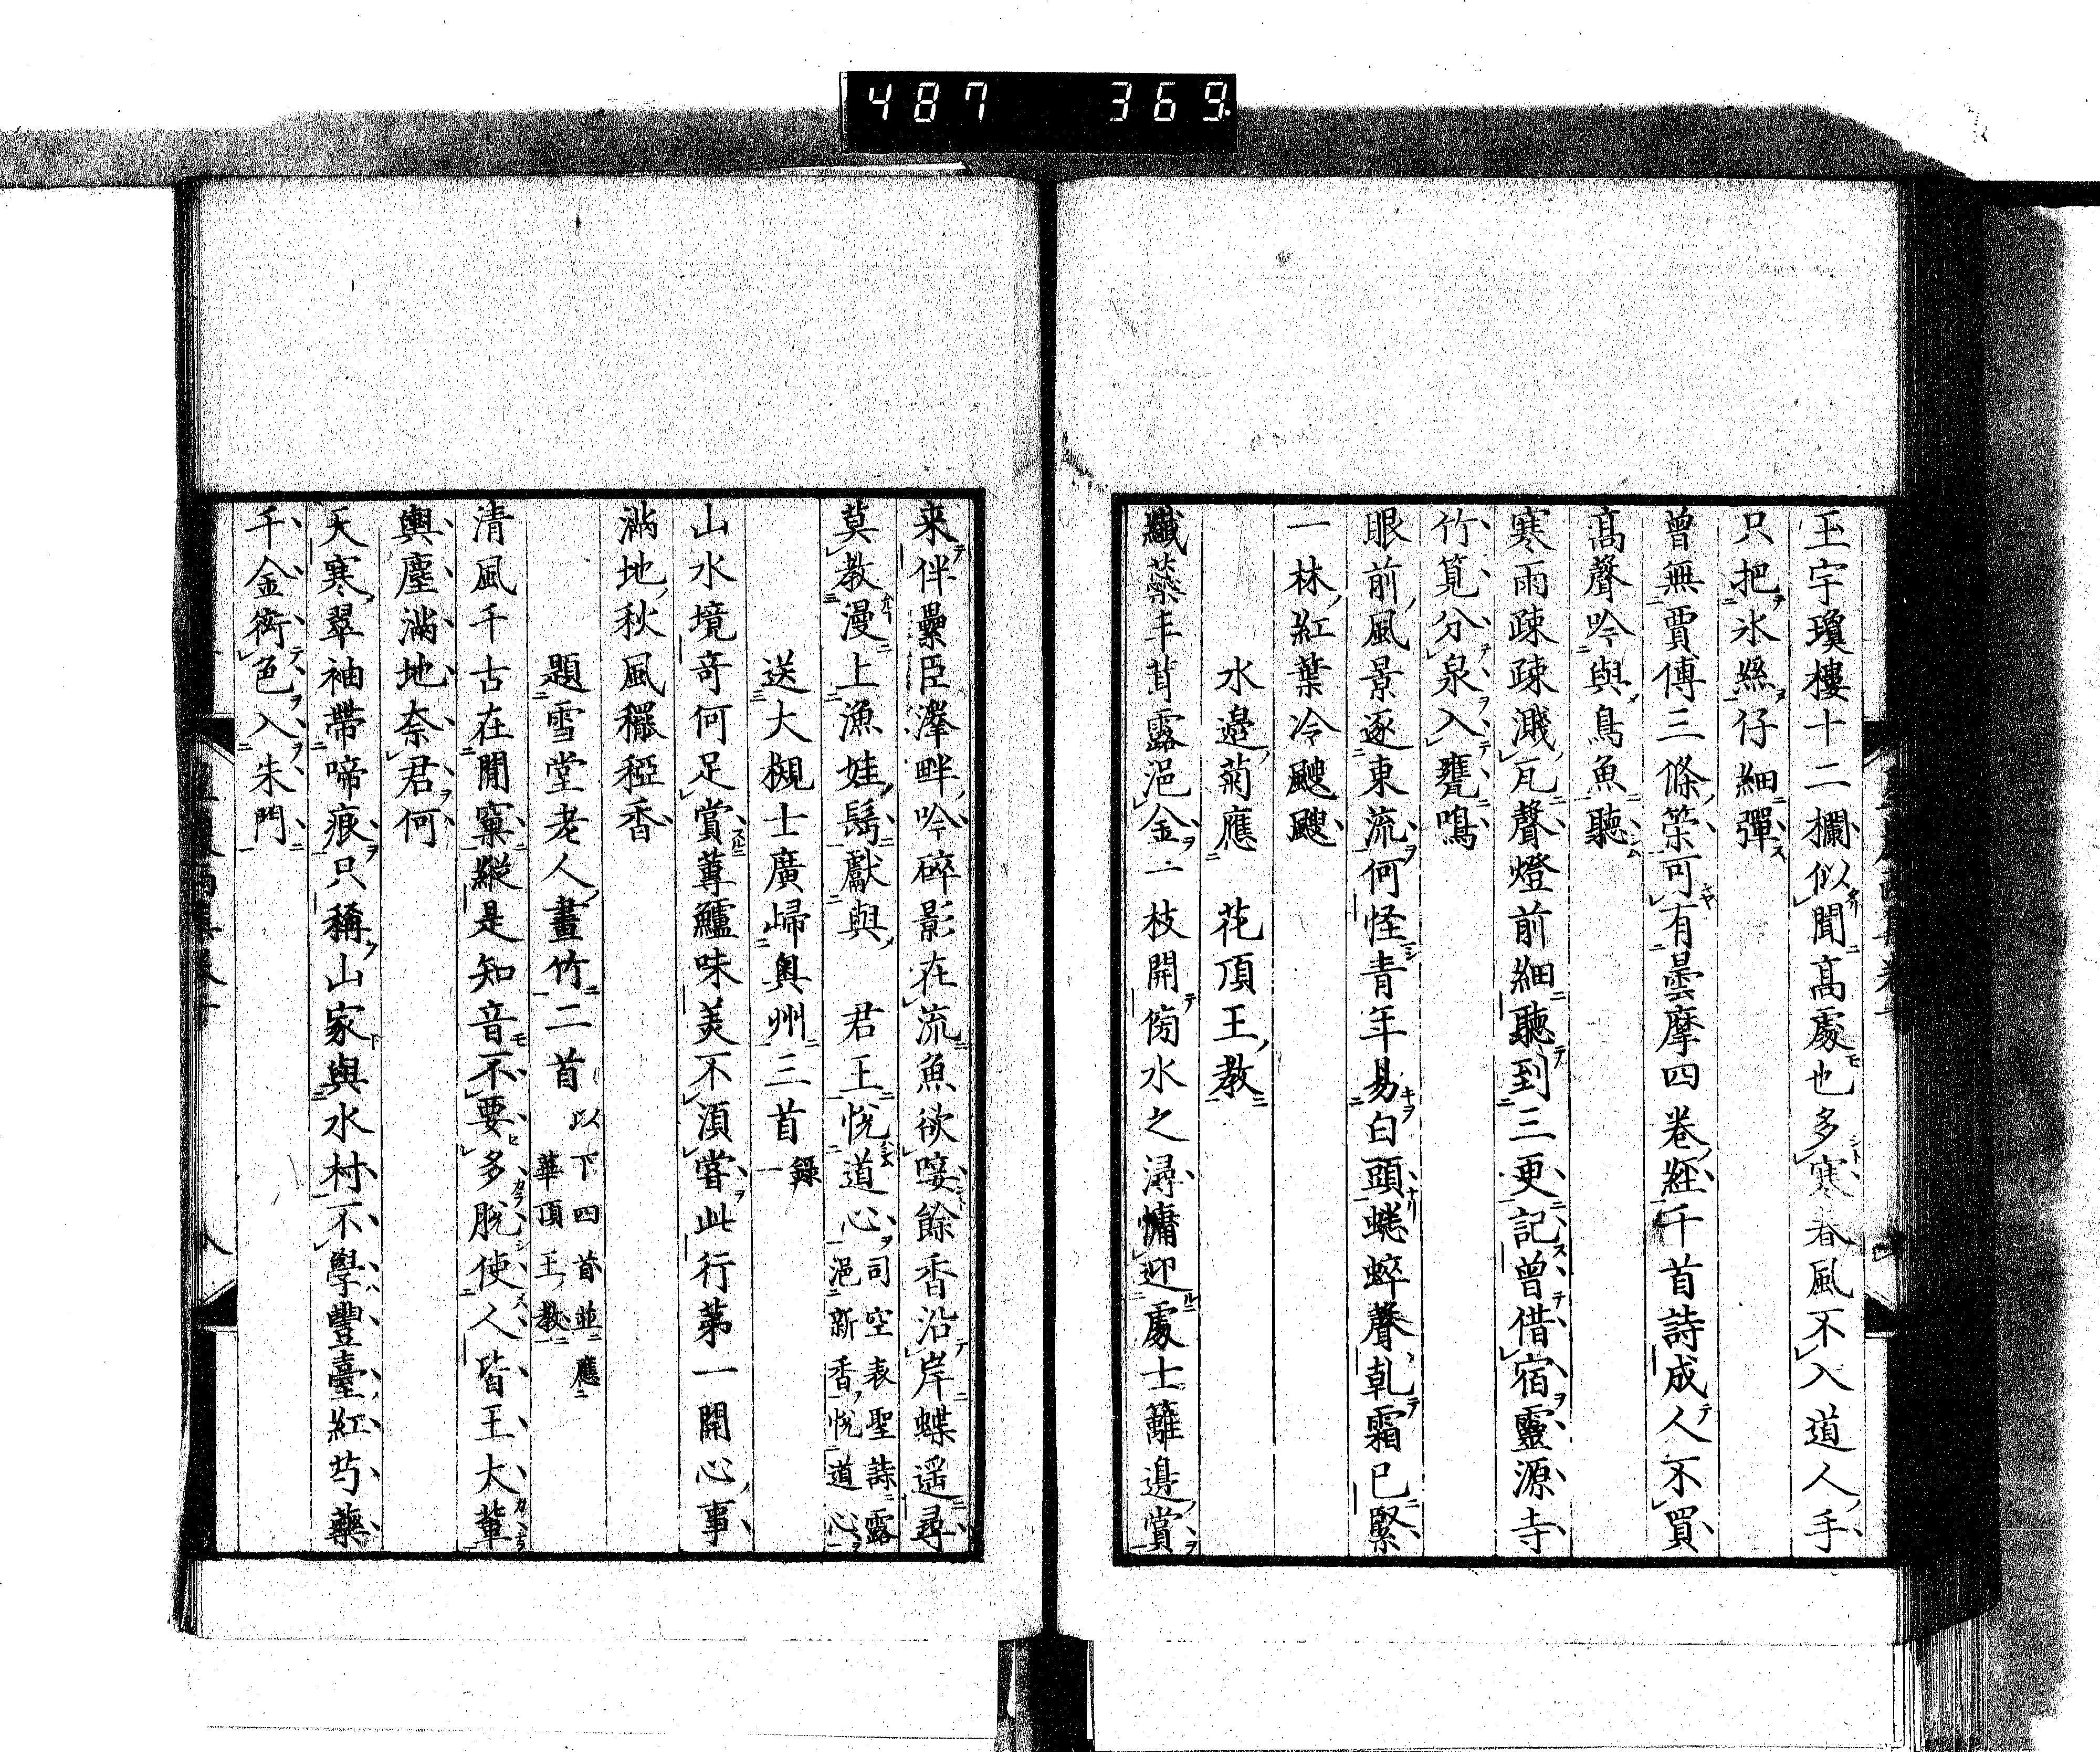 487 369
玉宇瓊樓十二欄似聞高處也多寒春風不入道人手
只把氷絲仔細彈
曾無賈傅三條策可有曇摩四卷經千首詩成人不買
高聲吟與鳥魚聽
寒雨疎疎濺瓦聲燈前細聽到三更記曾借宿靈源寺
竹筧分泉入甕鳴
眼前風景逐東流何怪青年易白頭蟋蟀聲乾霜已緊
一林紅葉冷颼颼
水邊菊應 花頂王教
纖蘂丰茸露浥金一枝開傍水之潯慵迎處士籬邊賞
来伴纍臣澤畔吟碎影在流魚欲唼餘香沿岸蝶遥尋
莫教漫上漁娃髩獻與 君王悅道心司空表聖詩露
浥新香悅道心
送大槻士廣歸奥州三首 錄一
山水境竒何足賞蓴鱸味美不須嘗此行第一開心事
滿地秋風䆉稏香
題雪堂老人畫竹二首 以下四首並應
華頂王教
清風千古在閒窠縱是知音不要多脫使人皆王大輩
輿塵滿地奈君何
天寒翠袖帶啼痕只稱山家與水村不學豐臺紅芍藥
千金衒色入朱門